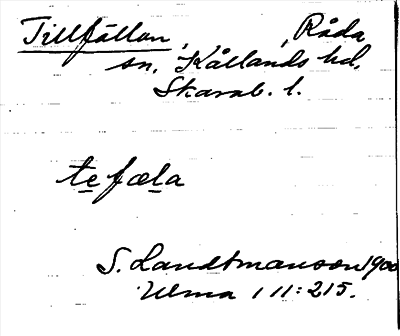 Tillfällan, Råda
sn, Kållands hd.
Skarab. l.
tefæla
S. Landtmanson 1900
Ulma 111:215.